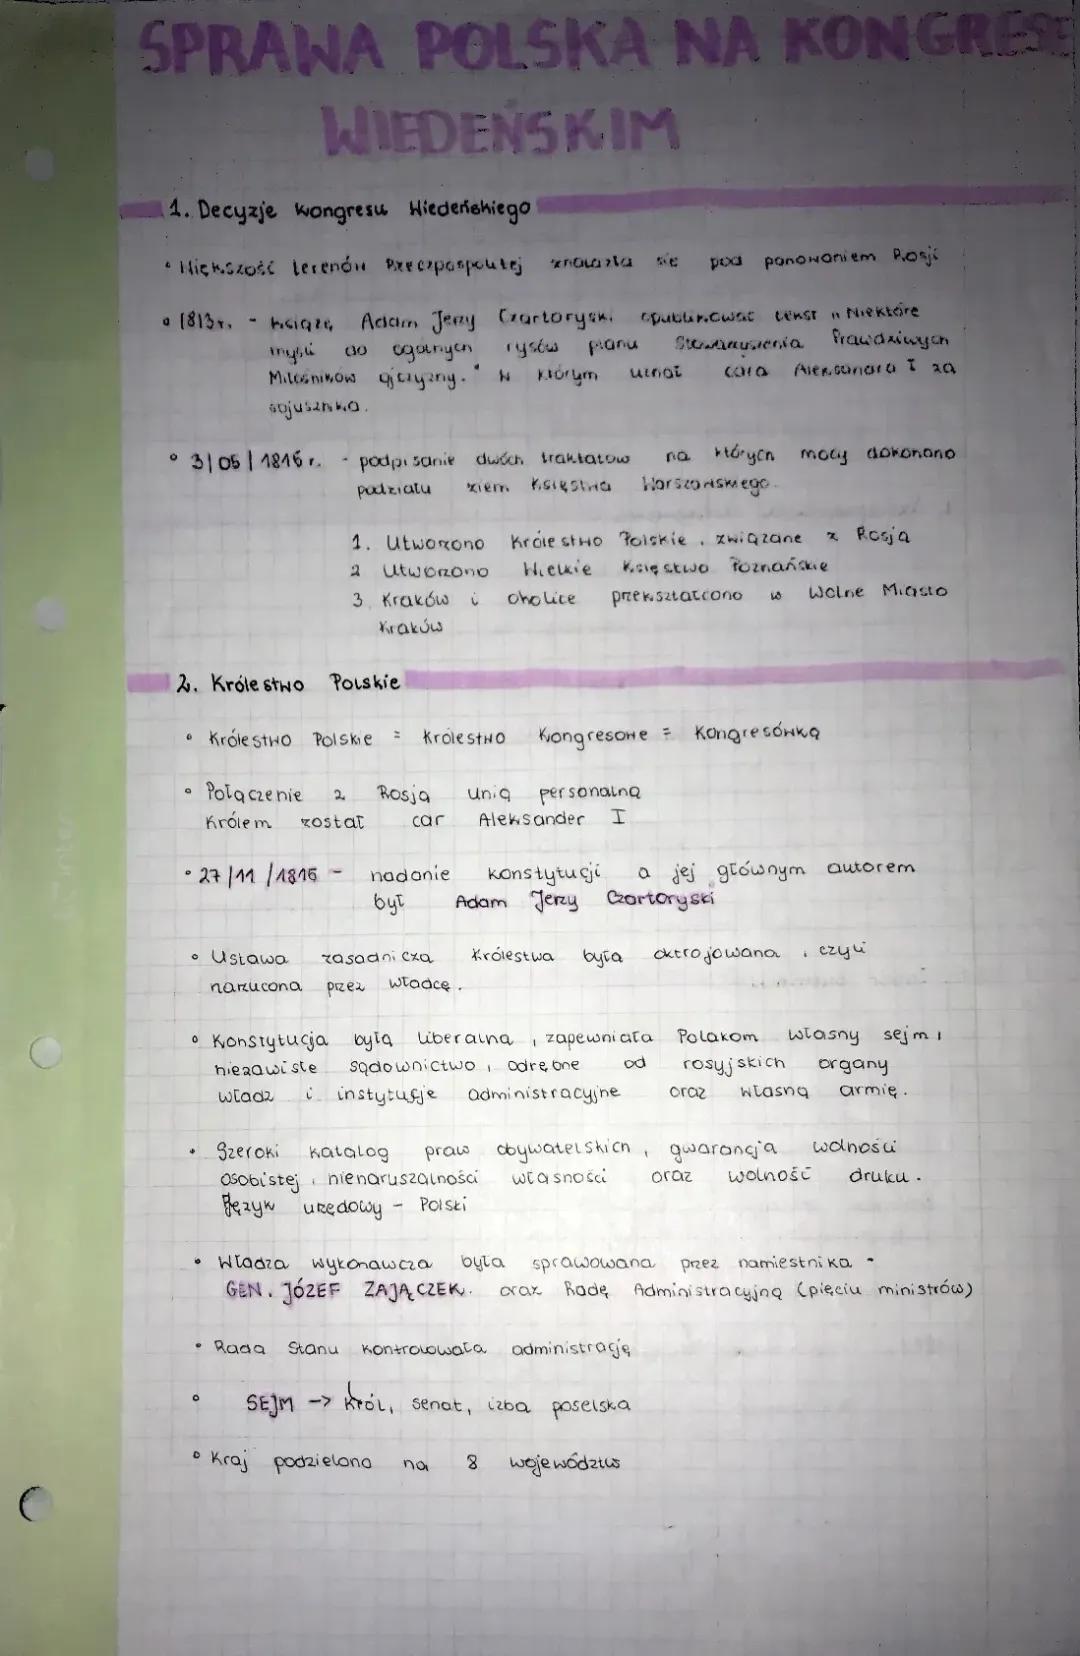 SPRAWA POLSKA NA KONGRESIE
WIEDEŃSKIM
1. Decyzje kongresu Wiedeńskiego
• Większość terenów Rzeczpospolitej znalazła się pod panowaniem Rosji
• 1813r. - książę Adam Jerzy Czartoryski opublikował tekst "Niektóre
myśli do ogólnych rysów planu Stowarzyszenia Prawdziwych
Miłośników ojczyzny." W którym uznał cara Aleksandra I za
sojusznika.
• 3|05|1815r. - podpisanie dwóch traktatów na których mocy dokonano
podziału ziem Księstwa Warszawskiego.
1. Utworzono Królestwo Polskie, związane z Rosją
2 Utworzono Wielkie Księstwo Poznańskie
3. Kraków i okolice przekształcono w Wolne Miasto
Kraków
2. Królestwo Polskie
• Królestwo Polskie = Królestwo Kongresowe = Kongresówką
• Połączenie z Rosją unią personalną
Królem został car Aleksander I
• 27/11/1815 - nadanie konstytucji a jej głównym autorem
był Adam Jerzy Czartoryski
• Ustawa zasadnicza Królestwa była oktrojowana, czyli
narzucona przez władcę.
• Konstytucja była liberalną, zapewniała Polakom własny sejm,
niezawisłe sądownictwo, odrębne od rosyjskich organy
władz i instytucje administracyjne oraz własną armię.
• Szeroki katalog praw obywatelskich, gwarancja wolności
osobistej, nienaruszalności własności oraz wolność druku.
Język urzędowy - Polski
• Władza wykonawcza była sprawowana przez namiestnika -
GEN. JÓZEF ZAJĄCZEK. oraz Radę Administracyjną (pięciu ministrów)
• Rada Stanu kontrolowała administrację
• SEJM -> król, senat, izba poselska
• Kraj podzielono na 8 województw